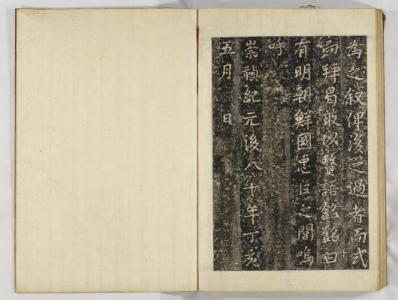 為之叙俾後之過者而式
而拜曷敢以贅語銘銘曰
有明朝鮮國忠臣之閭嗚
呼
崇禎紀元後八十年丁亥
五月 日